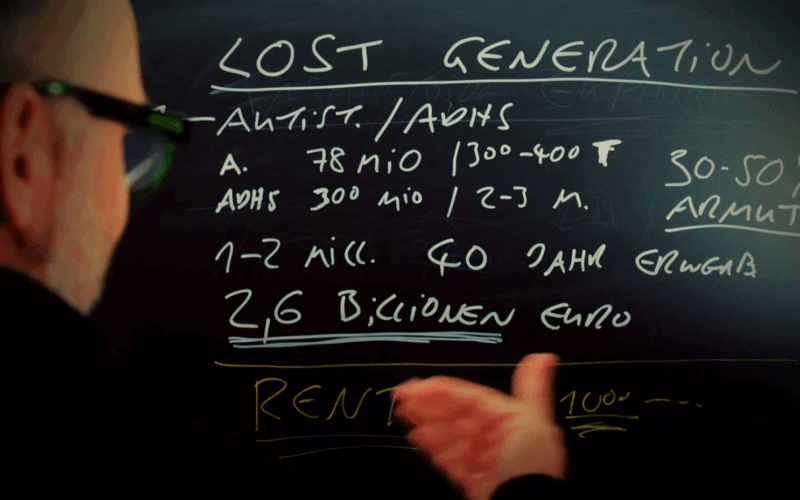 LOST GENERATION
— AUTIST. / ADHS
A. 78 MiO / 300-400 T
ADHS 300 MiO / 2-3 M.
30-50%
ARMUT
1-2 Mill. 40 JAHR ERWERB
2,6 BiLLIONEN EURO
RENT
1000 ---